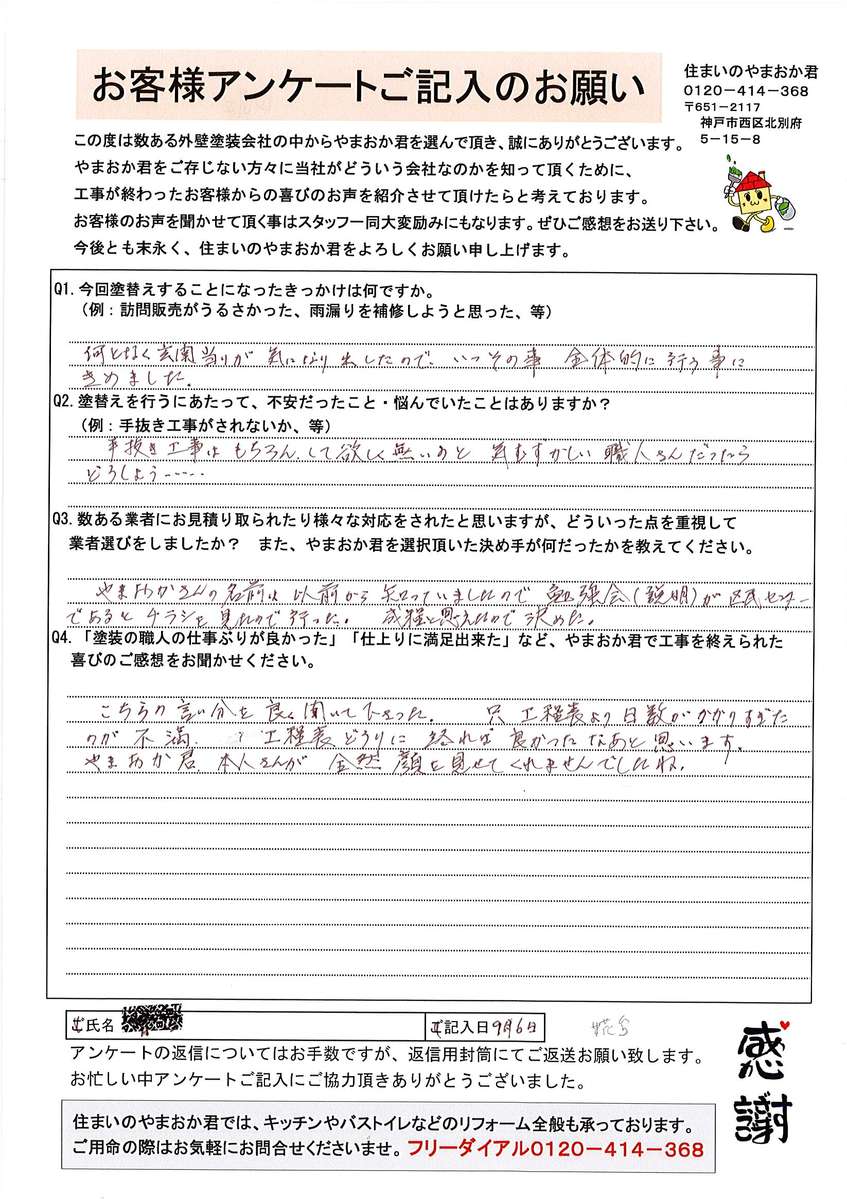 お客様アンケートご記入のお願い
住まいのやまおか君
0120-414-368
〒651-2117
神戸市西区北別府
5-15-8
この度は数ある外壁塗装会社の中からやまおか君を選んで頂き、誠にありがとうございます。
やまおか君をご存じない方々に当社がどういう会社なのかを知って頂くために、
工事が終わったお客様からの喜びのお声を紹介させて頂けたらと考えております。
お客様のお声を聞かせて頂く事はスタッフ一同大変励みにもなります。ぜひご感想をお送り下さい。
今後とも末永く、住まいのやまおか君をよろしくお願い申し上げます。
Q1. 今回塗替えすることになったきっかけは何ですか。
(例：訪問販売がうるさかった、雨漏りを補修しようと思った、等)
何となく玄関当りが気になり出したので、いっその事 全体的に行う事に
きめました。
Q2. 塗替えを行うにあたって、不安だったこと・悩んでいたことはありますか？
(例：手抜き工事がされないか、等)
手抜き工事はもちろん、して欲しく無いのと 気むずかしい職人さんだったら
どうしよう……
Q3. 数ある業者にお見積り取られたり様々な対応をされたと思いますが、どういった点を重視して
業者選びをしましたか？ また、やまおか君を選択頂いた決め手が何だったかを教えてください。
やまおかさんの名前は以前から知っていましたので勉強会(説明)が区民センター
であるとチラシを見たので行った。 成程と思えたので決めた。
Q4. 「塗装の職人の仕事ぶりが良かった」「仕上りに満足出来た」など、やまおか君で工事を終えられた
喜びのご感想をお聞かせください。
こちらの言い分を良く聞いて下さった。 只 工程表より日数がかかりすぎた
のが不満、 工程表どうりに終れば良かったなあと思います。
やまおか君、本人さんが 全然顔を見せてくれませんでしたね。
ご氏名
ご記入日 9月6日
アンケートの返信についてはお手数ですが、返信用封筒にてご返送お願い致します。
お忙しい中アンケートご記入にご協力頂きありがとうございました。
感謝
住まいのやまおか君では、キッチンやバストイレなどのリフォーム全般も承っております。
ご用命の際はお気軽にお問合せくださいませ。フリーダイアル0120-414-368